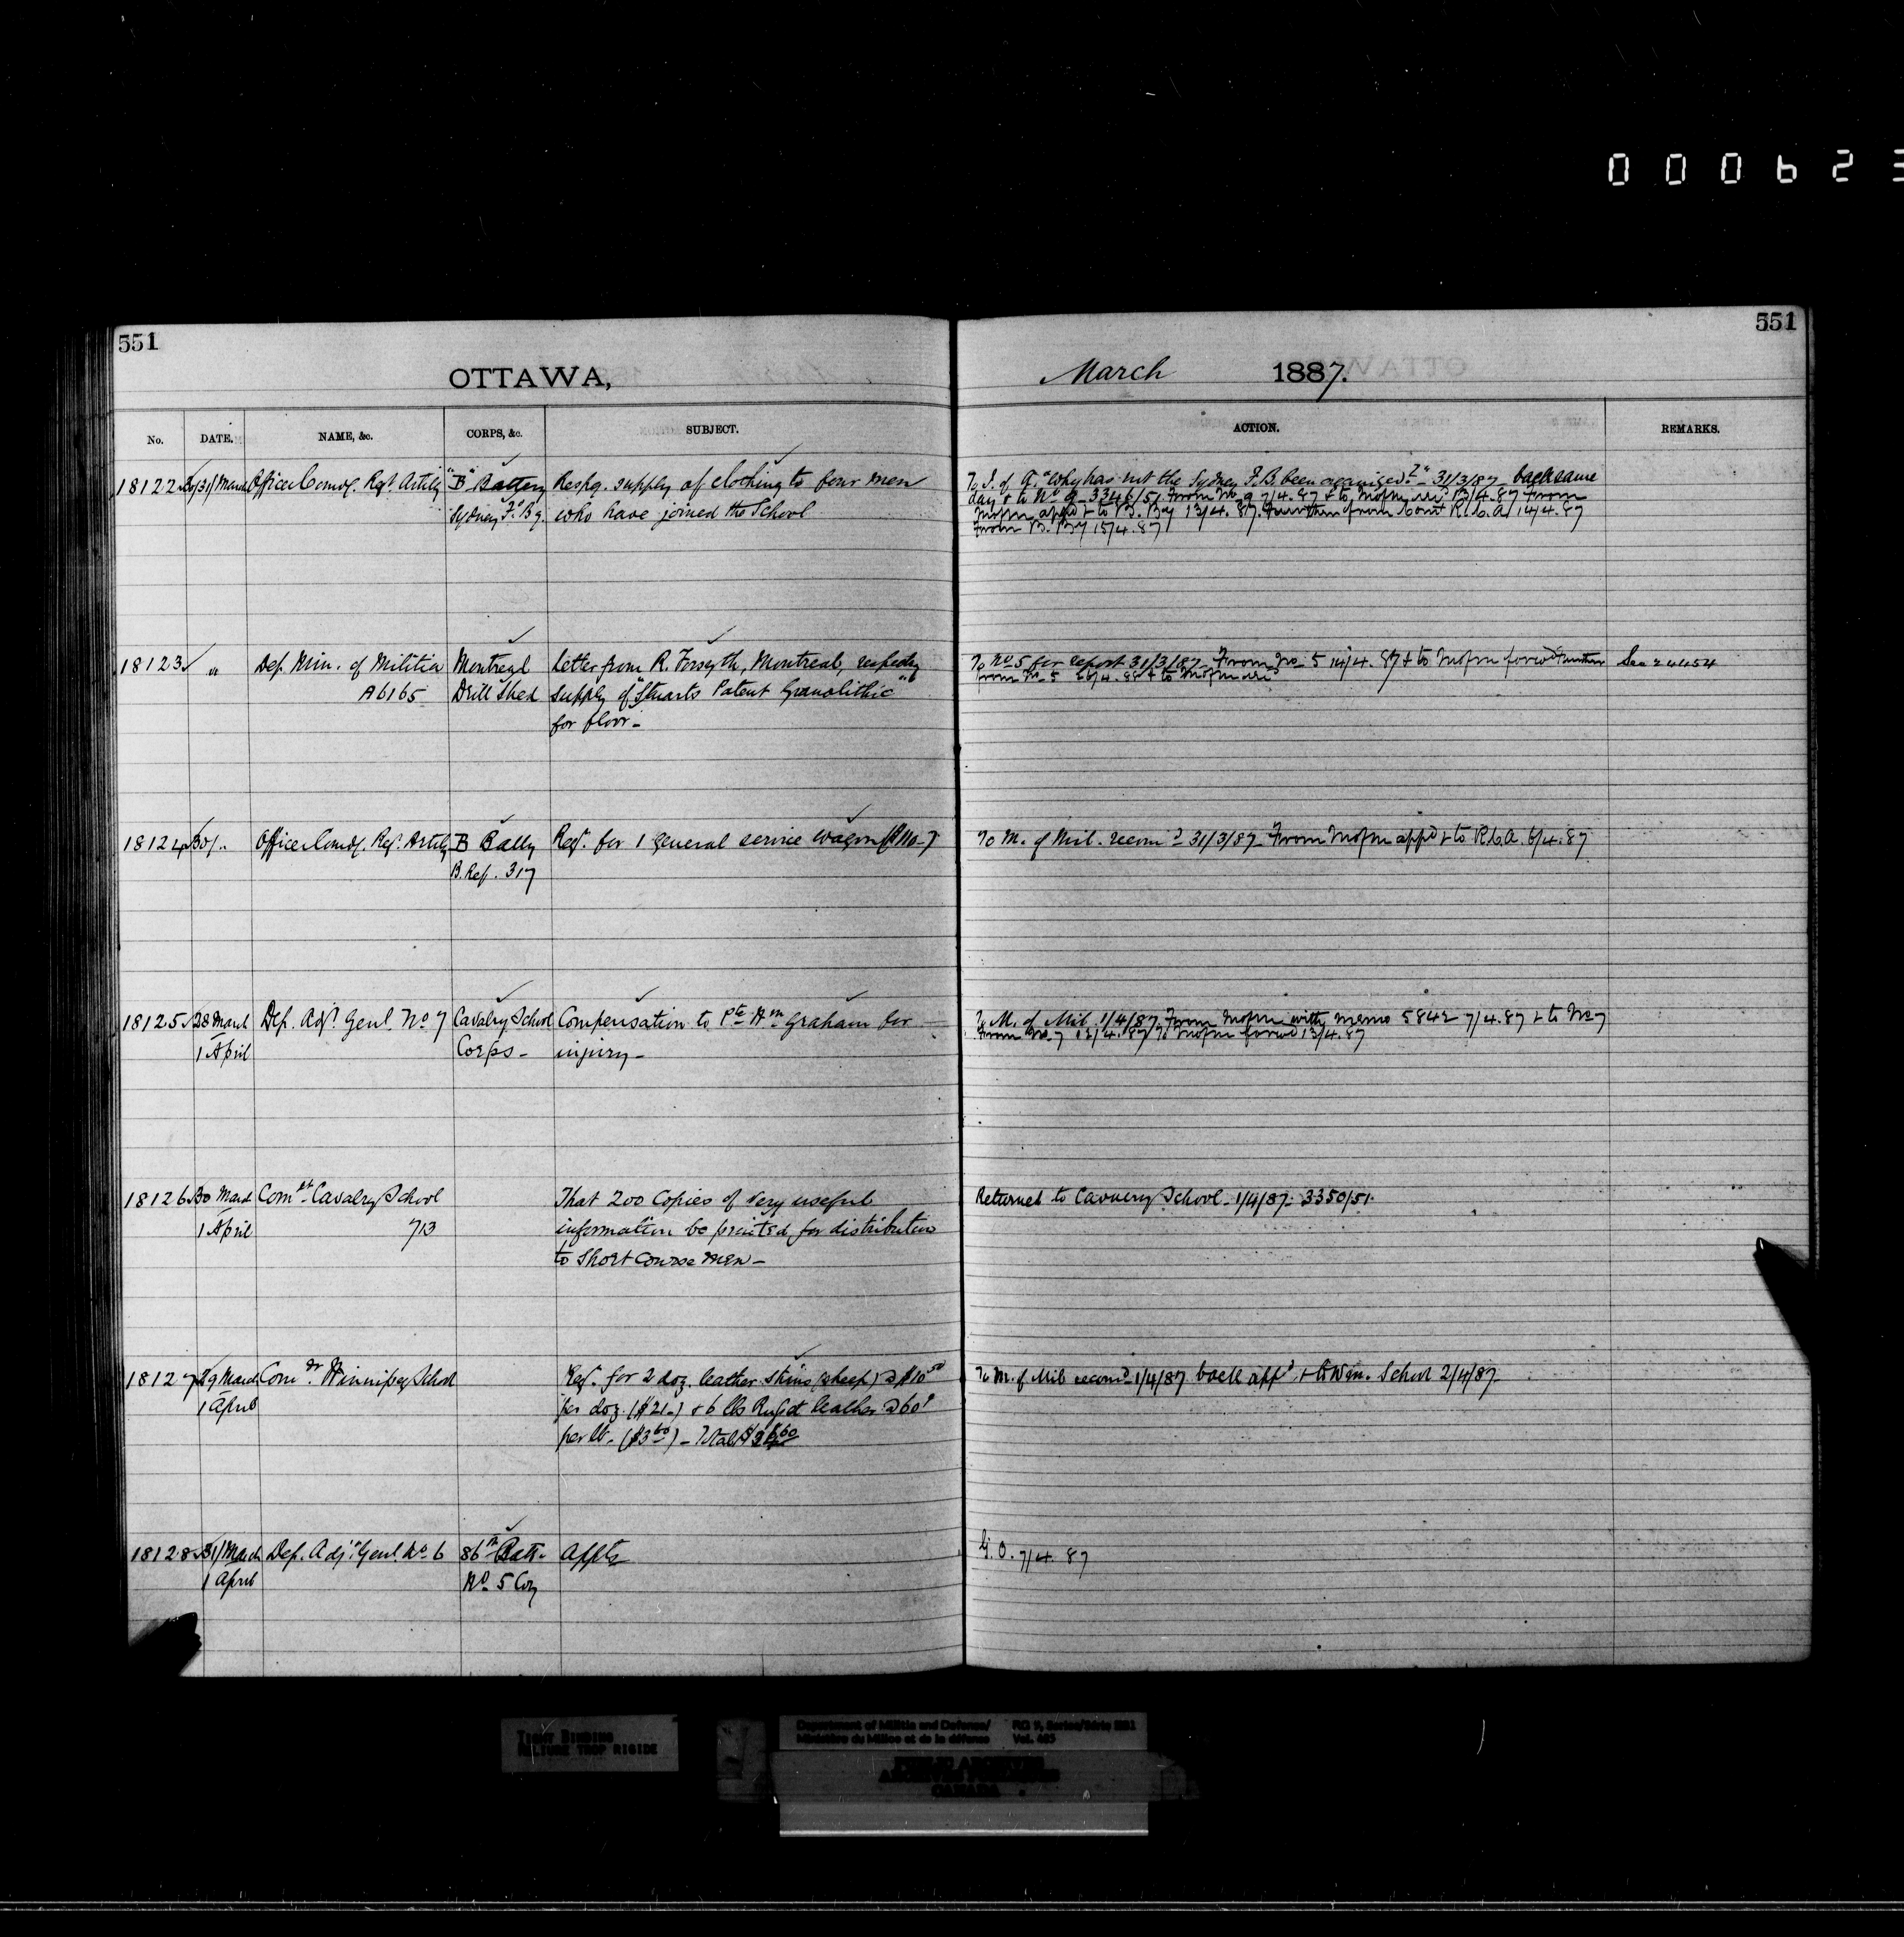 000623
551
551
OTTAWA,
March 1887.
No. DATE. NAME, &c. CORPS, &c. SUBJECT. ACTION. REMARKS.
18122 30/31/March Officer Comdg. Regt. Artily "B" Battery Respg. supply of clothing to four men
Sydney F. By. who have joined the School
To I. of A. "Why has not the Sydney F.B. been organized?" - 31/3/87 - back same
day & to No. 9 - 3346/51. From No. 9 7/4.87 & to Mofm 13/4.87 From
Mofm appd & to B. By 13/4.87. Further from Comt R.C.A. 14/4.87
From B. By 15/4.87
18123 " Dep. Min. of Militia Montreal Letter from R. Forsyth, Montreal, respectg
A6165 Drill Shed supply of "Stuarts Patent Granolithic"
for floor -
To No. 5 for report 31/3/87 - From No. 5 14/4.87 & to Mofm forwd Further See 24454
from No. 5 26/4.88 & to Mofm
18124 30/ " Officer Comdg. Regt. Artily B Batty Reqn. for 1 general service wagon ($110-)
B. Ref. 317
To M. of Mil. recomd 31/3/87 - From Mofm appd & to R.C.A. 6/4.87
18125 28 March Dep. Adjt. Genl. No 7 Cavalry School Compensation to Pte. Wm. Graham for
1 April Corps - injury -
To M. of Mil. 1/4/87. From Mofm with memo 5842 7/4.87 & to No 7
From No. 7 12/4.87 To Mofm forwd 13/4.87
18126 30 March Comdt. Cavalry School That 200 Copies of very useful
1 April 713 information be printed for distribution
to Short Course Men -
Returned to Cavalry School - 1/4/87 - 3350/51.
18127 29 March Comdr. Winnipeg School Reqn. for 2 doz. leather skins (sheep) @ $10 50
1 April per doz. ($21-) & 6 lbs Russet leather @ 60¢
per lb - ($3 60) - Total
To M. of Mil recomd - 1/4/87 back appd. & to Win. School 2/4/87
18128 31/March Dep. Adjt. Genl. No 6 86th Batt. Appts
1 April No 5 Coy
G.O. 7/4.87
TIGHT BINDING
RELIURE TROP RIGIDE
Department of Militia and Defence/ RG 9, Series/Série IIB1
Ministère du Milice et de la défense Vol. 605
PUBLIC ARCHIVES
ARCHIVES PUBLIQUES
CANADA